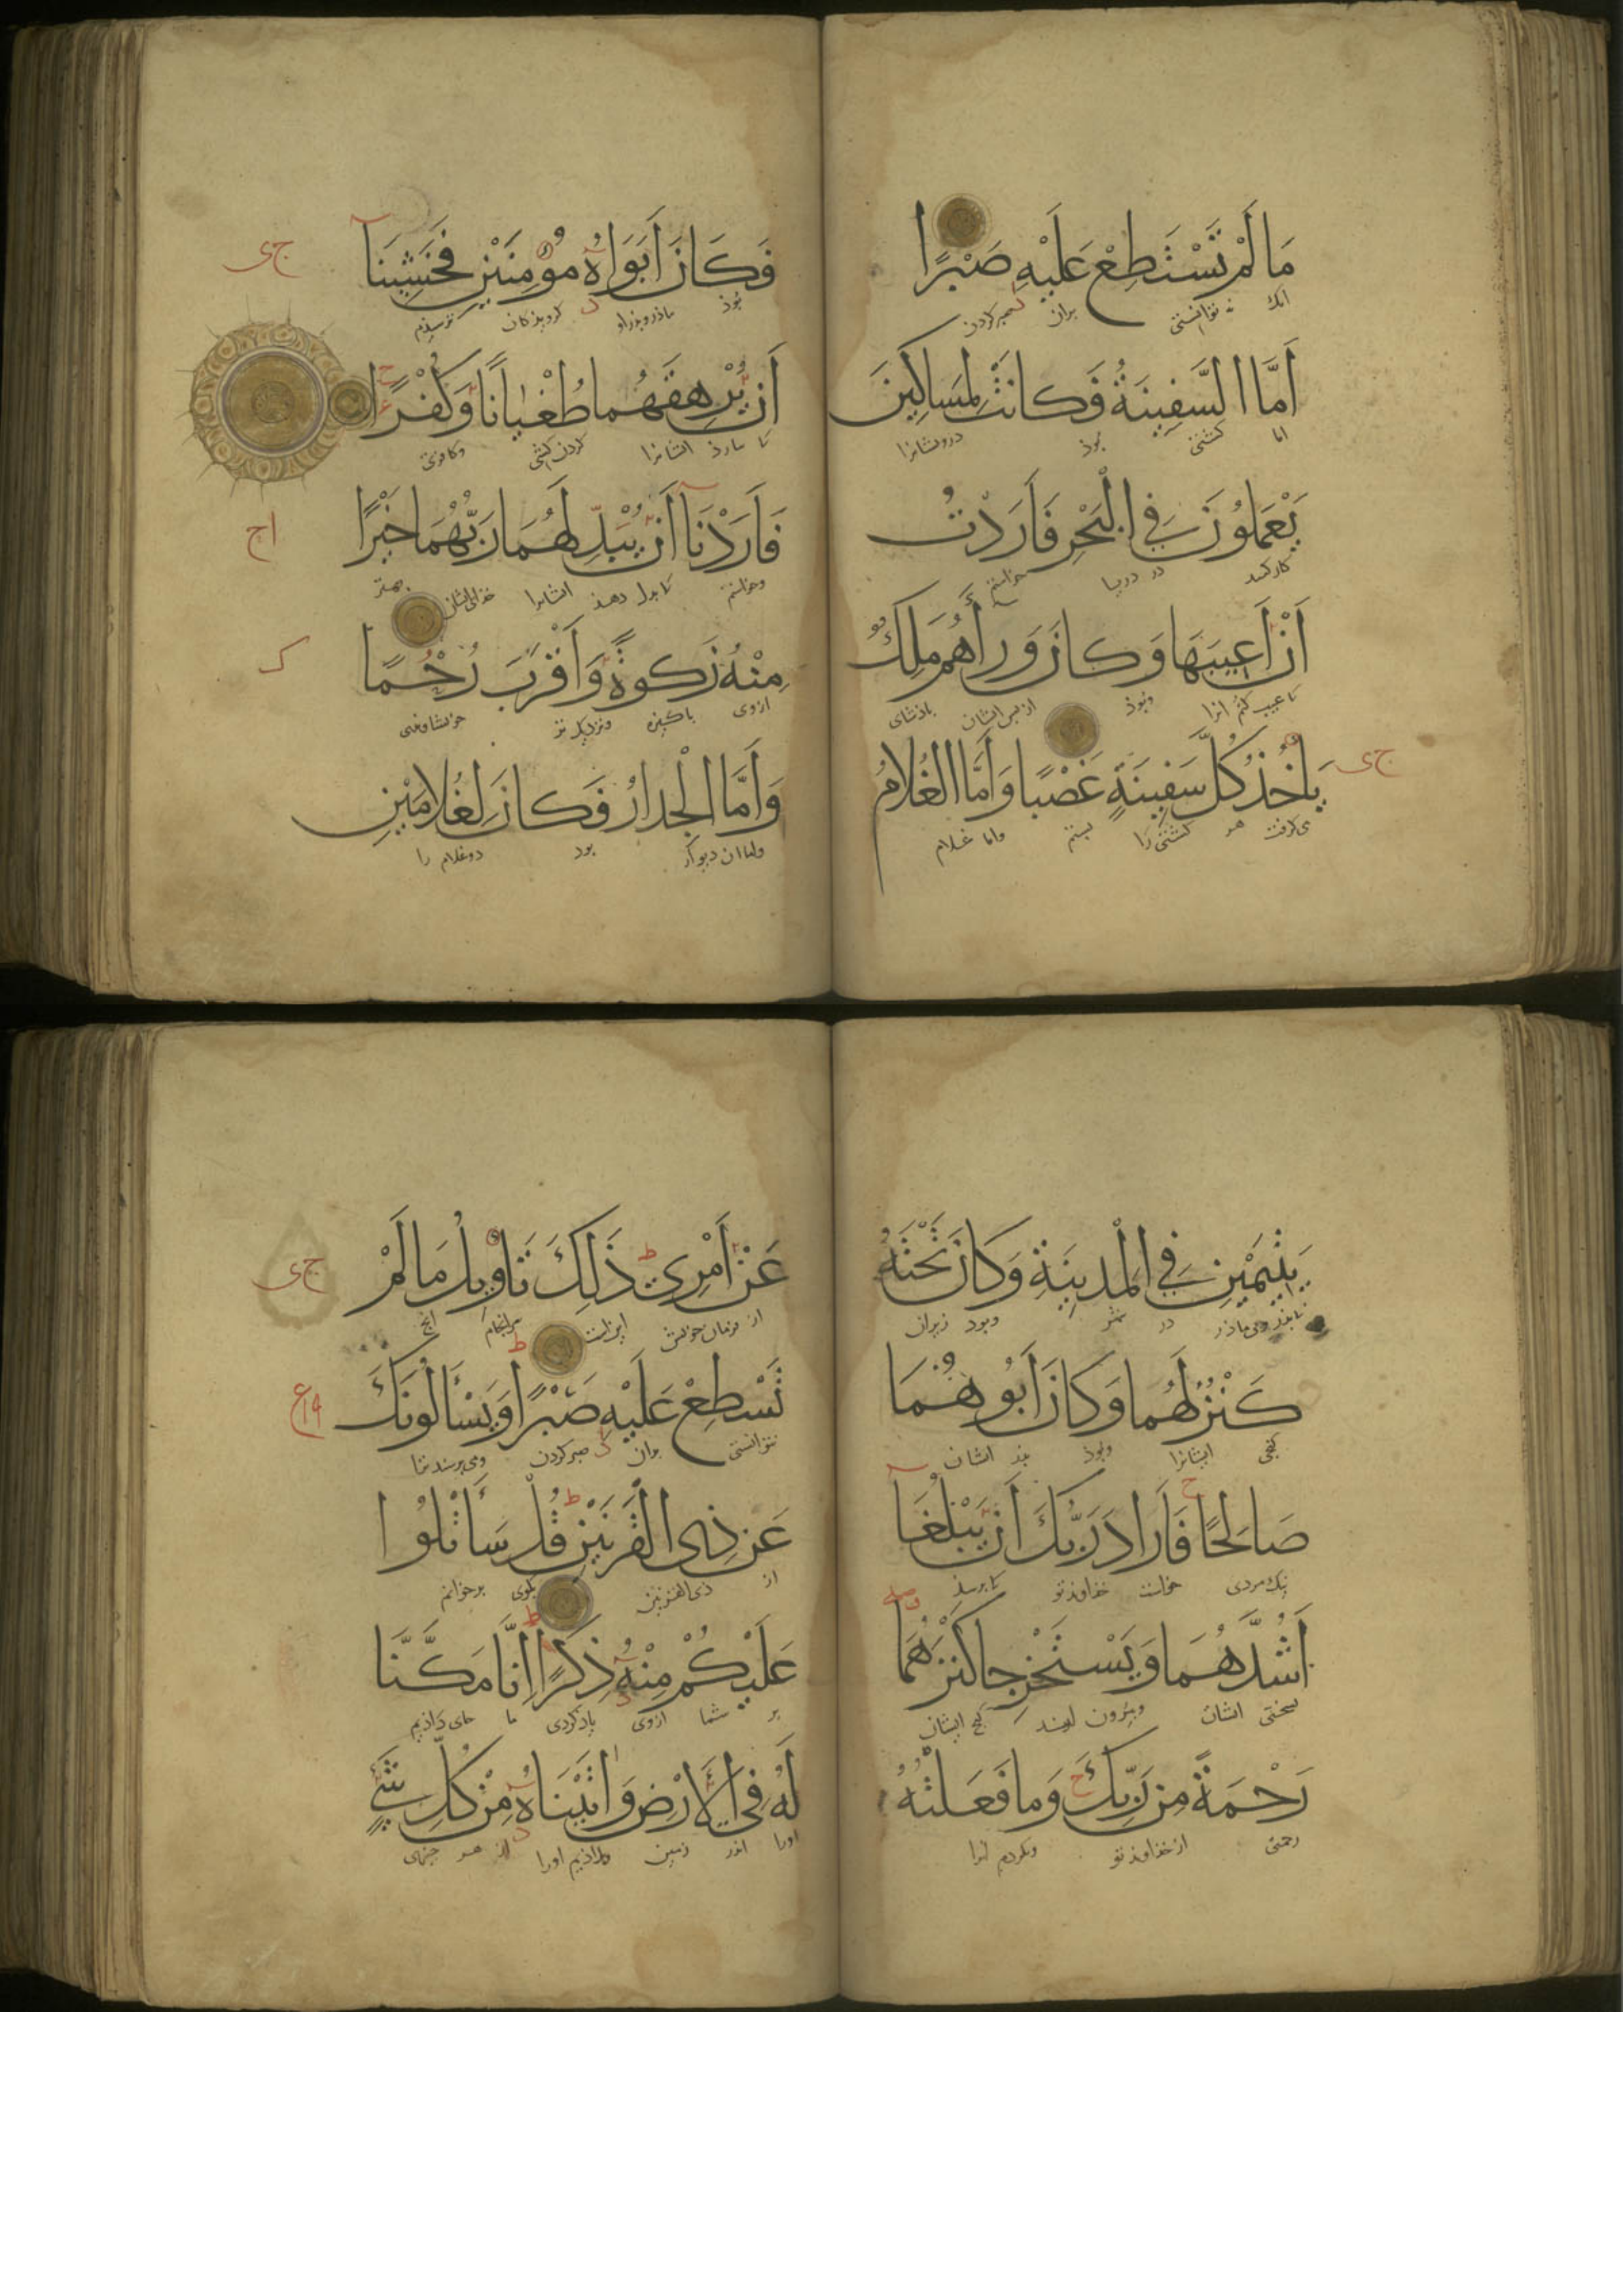 مَا لَمْ تَسْتَطِعْ عَلَيْهِ صَبْرًا
انك نه توانستی بران صبر کردن
اَمَّا السَّفِينَةُ فَكَانَتْ لِمَسَاكِينَ
اما کشتی بوذ درویشانرا
يَعْمَلُونَ فِي الْبَحْرِ فَاَرَدْتُ
کار کنند در دریا خواستم
اَنْ اَعِيبَهَا وَكَانَ وَرَاءَهُمْ مَلِكٌ
تا عیب کنم انرا وبوذ از پس ایشان باذشای
يَاْخُذُ كُلَّ سَفِينَةٍ غَصْبًا وَاَمَّا الْغُلَامُ
ج ی
می کرفت هر کشتی را بستم واما غلام
فَكَانَ اَبَوَاهُ مُؤْمِنَيْنِ فَخَشِينَا
ج ی
بوذ ماذر وبذر او کرویذکان ترسیذیم
اَنْ يُرْهِقَهُمَا طُغْيَانًا وَكُفْرًا
تا ایشانرا وکافری
فَاَرَدْنَا اَنْ يُبْدِلَهُمَا رَبُّهُمَا خَيْرًا
اج
وخواستیم تا بدل دهذ ایشانرا خذای ایشان بهتر
مِنْهُ زَكٰوةً وَاَقْرَبَ رُحْمًا
ک
ازوی باکیزه ونزدیک تر
وَاَمَّا الْجِدَارُ فَكَانَ لِغُلَامَيْنِ
واما ان دیوار بود دو غلام را
يَتِيمَيْنِ فِي الْمَدِينَةِ وَكَانَ تَحْتَهُ
در شهر وبود زیر ان
كَنْزٌ لَهُمَا وَكَانَ اَبُوهُمَا
کنجی ایشانرا وبوذ بذر ایشان
صَالِحًا فَاَرَادَ رَبُّكَ اَنْ يَبْلُغَا
نیک مردی خواست خذاوند تو تا برسند
اَشُدَّهُمَا وَيَسْتَخْرِجَا كَنْزَهُمَا
بسختی ایشان وبیرون کنج ایشان
رَحْمَةً مِنْ رَبِّكَ وَمَا فَعَلْتُهُ
رحمتی از خذاوند تو ونکردم انرا
عَنْ اَمْرِي ذَلِكَ تَاْوِيلُ مَا لَمْ
ج ی
از فرمان خویش این است سرانجام انچ
تَسْطِعْ عَلَيْهِ صَبْرًا وَيَسْاَلُونَكَ
نتوانستی بران صبر کردن ومی پرسند ترا
عَنْ ذِي الْقَرْنَيْنِ قُلْ سَاَتْلُوا
از ذی القرنین بکوی برخوانم
عَلَيْكُمْ مِنْهُ ذِكْرًا اِنَّا مَكَّنَّا
بر شما ازوی یاذکردی ما جای داذیم
لَهُ فِي الْاَرْضِ وَاٰتَيْنَاهُ مِنْ كُلِّ شَيْءٍ
اورا اندر زمین وداذیم اورا از هر چیزی